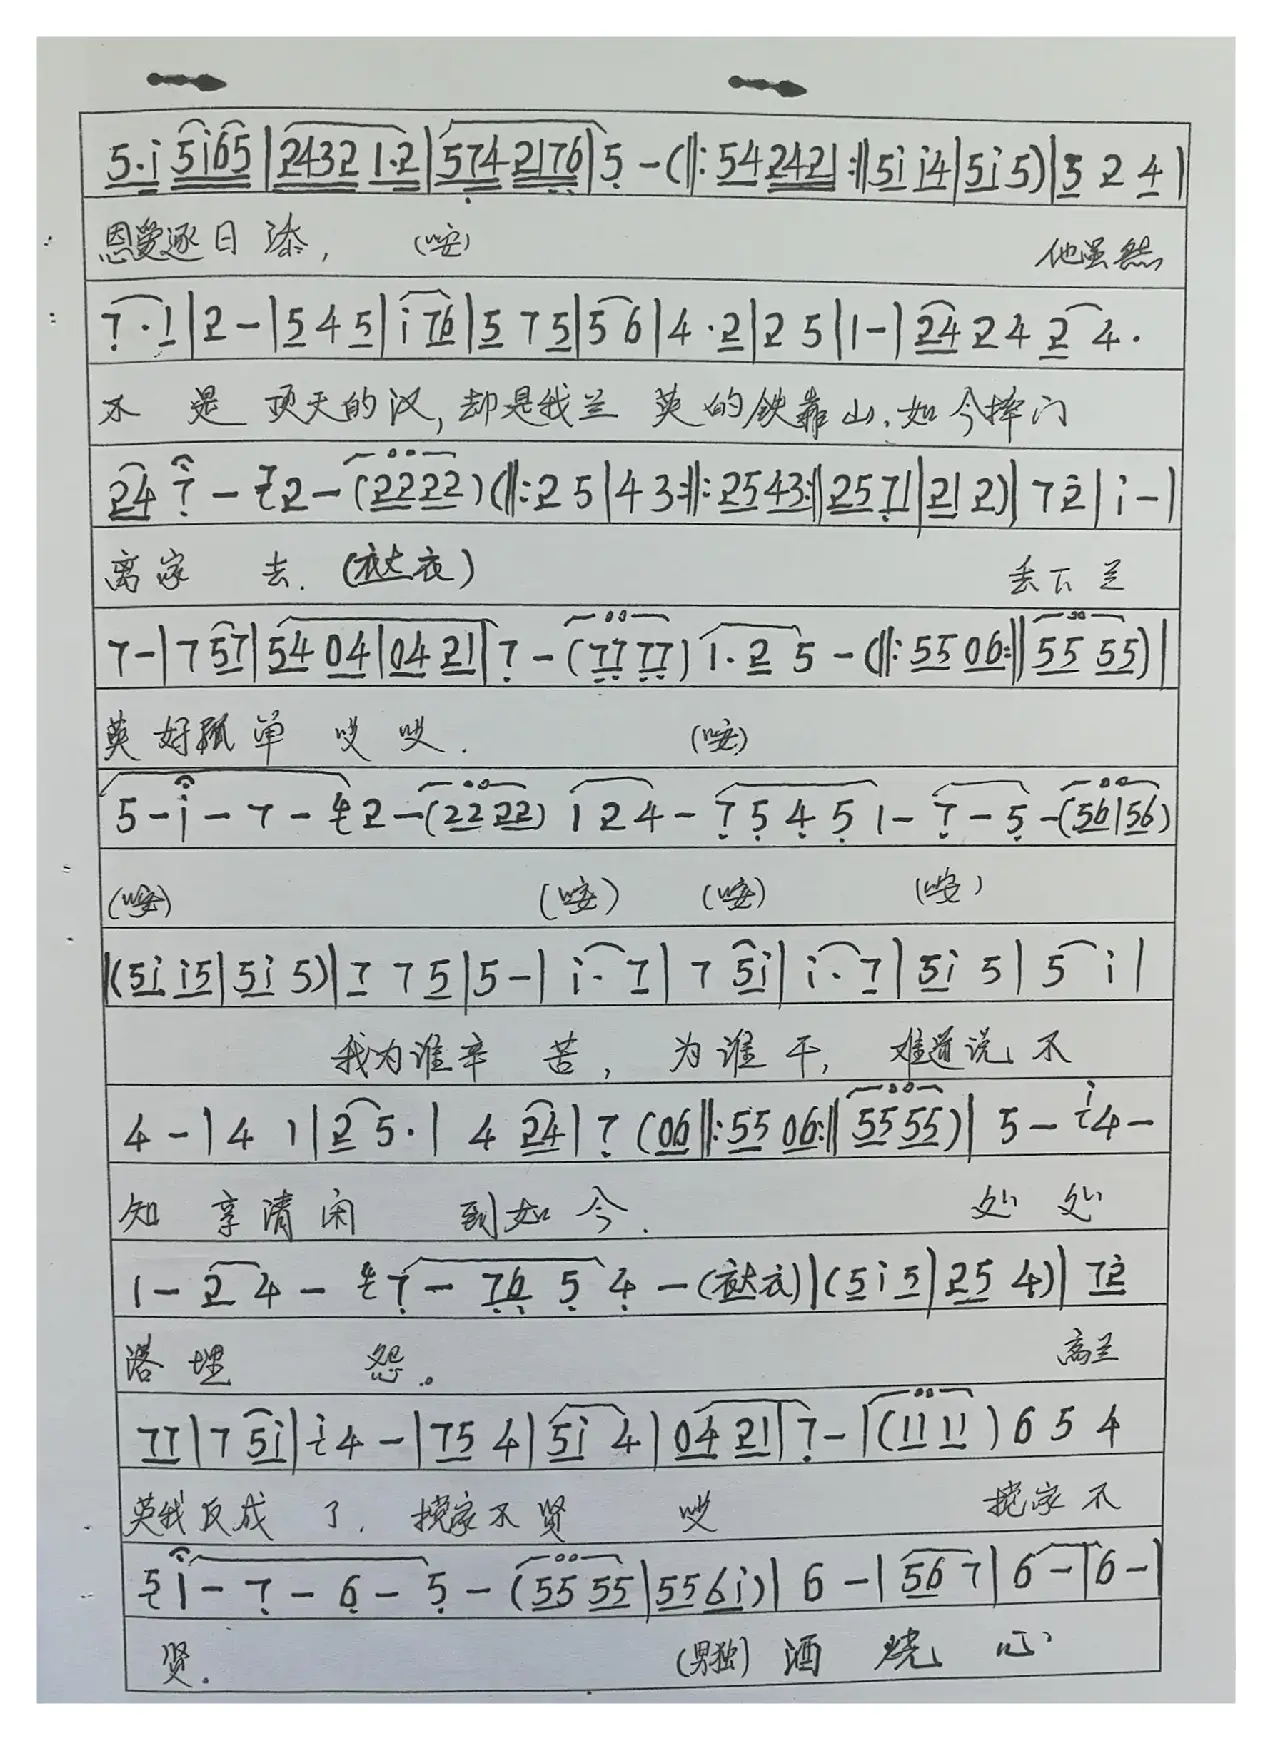 5·i 5i65 |2432 1·2|574 2176|5 -(‖:54 2421:‖5i i4|5i 5)|3 2 4|
恩爱逐日添, (咹) 他虽然
7·1|2-|5 4 5|i 76|5 7 5|5 6|4·2|2 5|1-|24 2 4 2 4·
不 是 顶天的汉, 却是我兰 英的铁靠山. 如今摔门
24 7 - 7 2-(2222)(‖:2 5|4 3:‖:25 43:‖25 71|21 2)|7 2|i-|
离家 去. (衣大衣) 丢下兰
7-|7 57|54 04|04 21|7 -(77 77) 1·2 5 -(‖:55 06:‖55 55)|
英 好孤单 哎 哎. (咹)
5-i-7-4 2-(22 22) 1 2 4-7 5 4 5 1-7-5-(56|56)
(咹) (咹) (咹) (咹)
|(5i i5|5i 5)|7 7 5|5-|i·7|7 5i|i·7|5i 5|5 i|
我为谁辛 苦, 为谁干, 难道说不
4-|4 1|2 5·|4 24|7 (06‖:55 06:‖55 55)|5-i4-
知 享清闲 到如今. 处处
1-2 4-67-76 5 4-(衣大衣)|(5i5|25 4)|72
落埋 怨. 高兰
77|7 5i|i4-|75 4|5i 4|04 21|7-|(11 11) 6 5 4
英我反成 了. 搅家不贤 哎 搅家不
5 i-7-6-5-(55 55|55 6i)|6-|56 7|6-|6-|
贤. (男独) 酒 烧 心